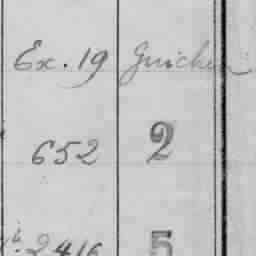 Ex. 19 Guichen
652 2
2416 5